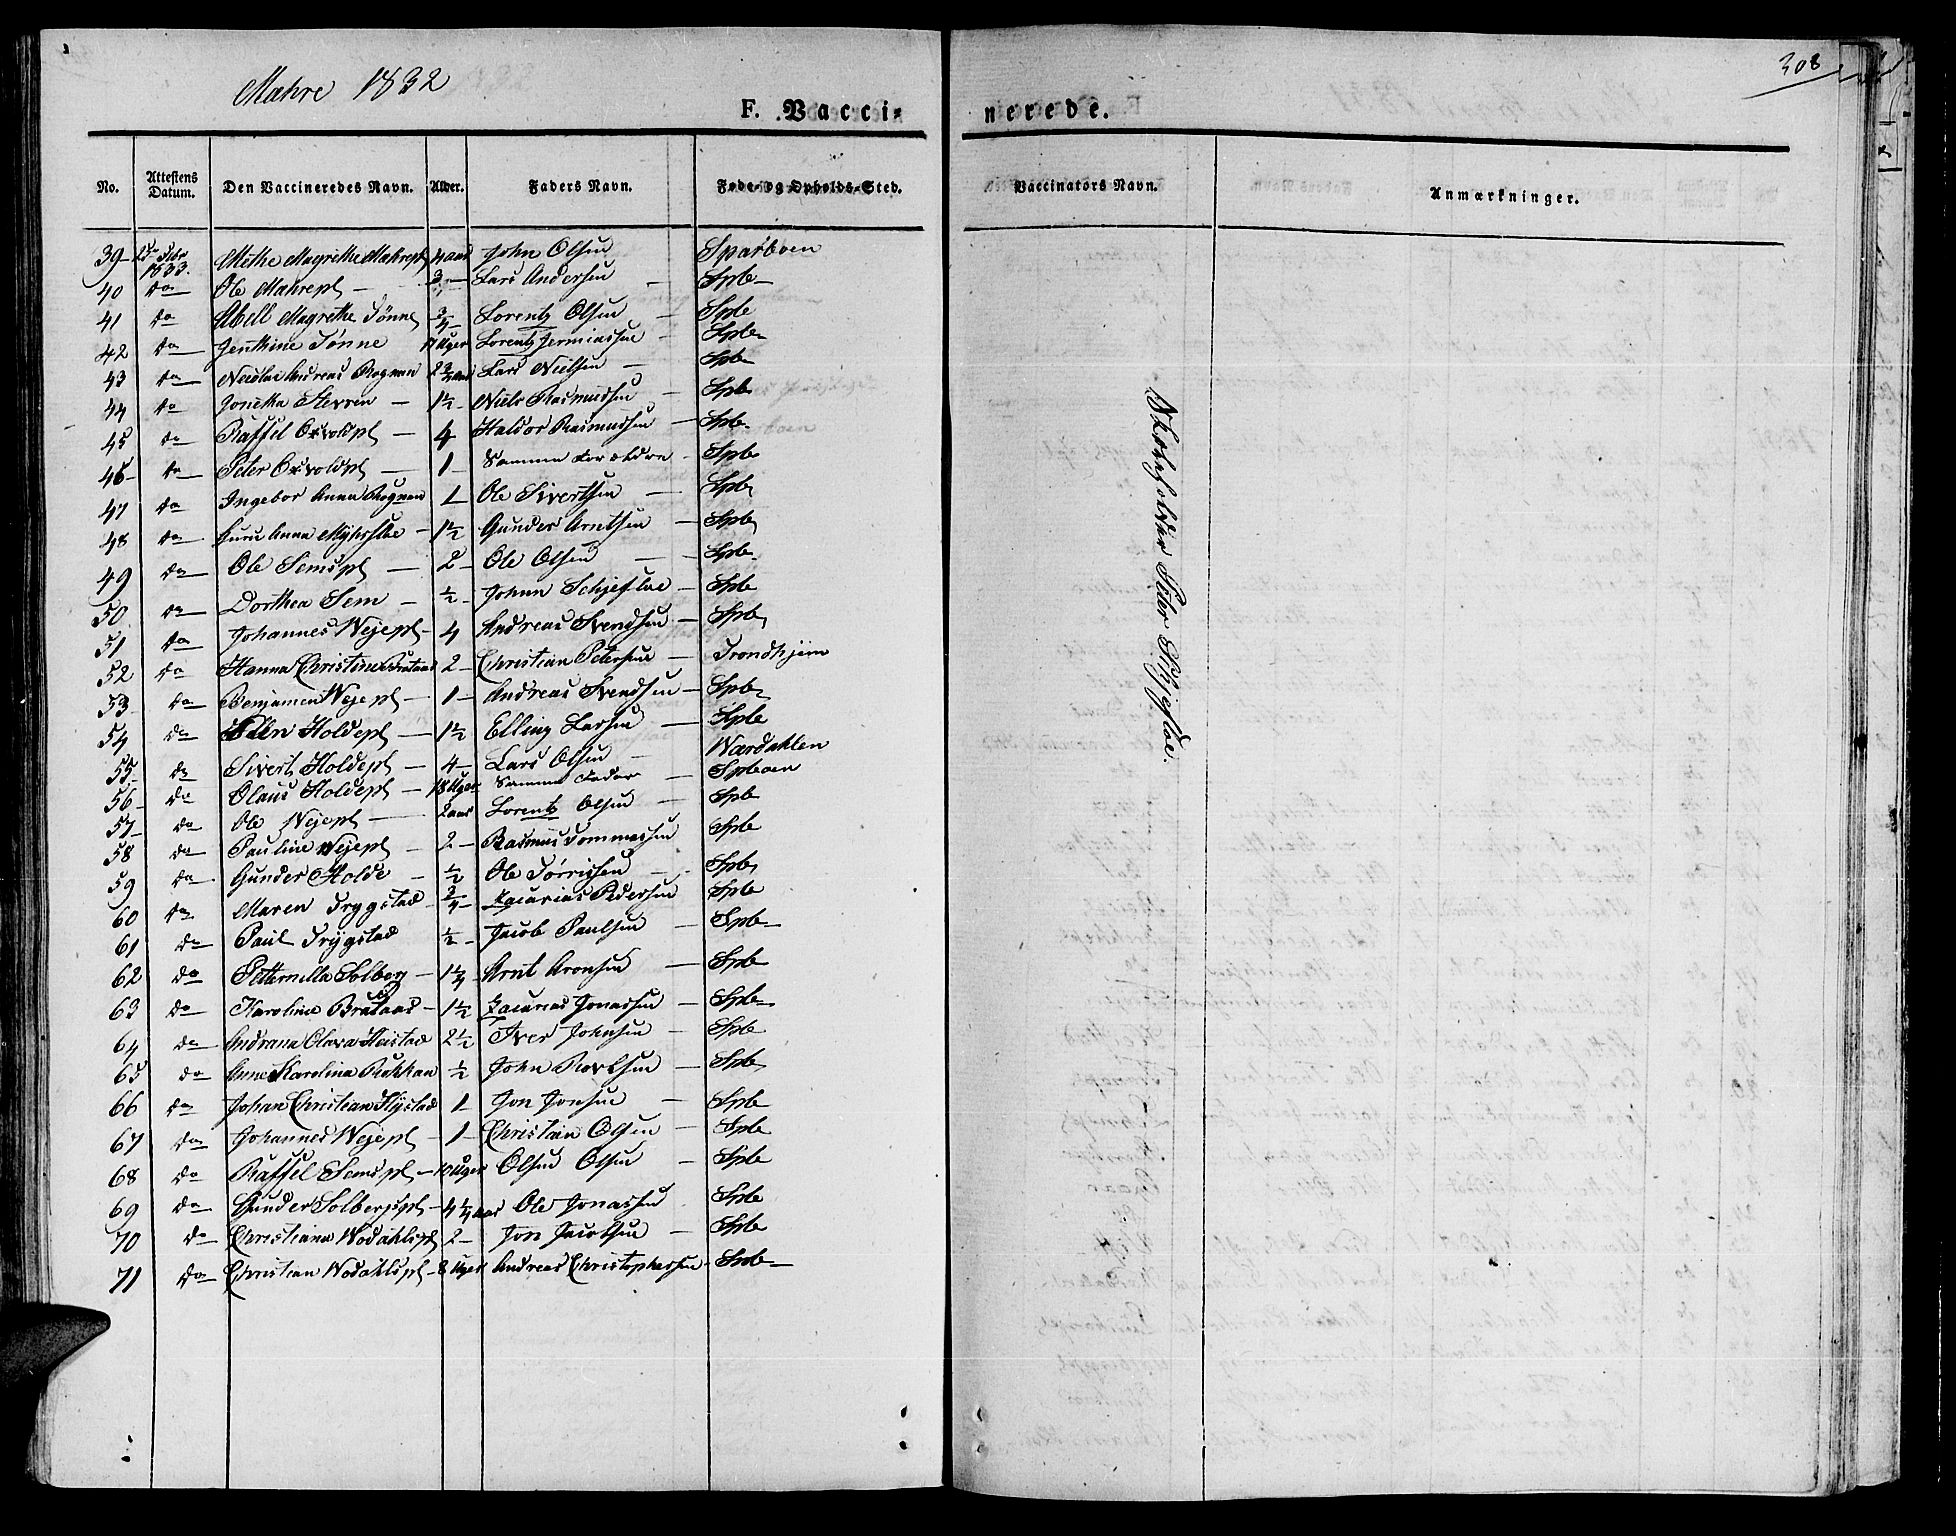 Mahre 1832
308
F. Vacci-
nerede.
No. Attestens Datum. Den Vaccineredes Navn. Alder. Faders Navn. Føde- og Opholds-Sted. Vaccinators Navn. Anmærkninger.
39 1833. Methe Magrethe Mahrepl 4 aar John Olsen Sparboen
40 do Ole Mahrepl Lars Andersen Spb
41 do Abell Magrethe Tønne 3/4 Lorentz Olsen Spb
42 do Jenthine Tønne 17 Uger Lorentz Jermiassen Spb
43 do Nicolai Andreas Rognan 2 3/4 aar Lars Nielsen Spb
44 do Jonetta Sterren 1½ Niels Rasmussen Spb
45 do Raffel Oxvoldpl 4 Haldor Rasmussen Spb
46 do Peter Oxvoldpl 1 Samme Forældre Spb
47 do Ingebor Anna Rognan 1 Ole Sivertsen Spb
48 do Guru Anna 1½ Gunder Arntsen Spb
49 do Ole Semspl 2 Ole Olsen Spb
50 do Dorthea Sem ½ Johan Schjefloe Spb
51 do Johannes Wejepl 4 Andreas Svendsen Spb
52 do Hanna Christina Brataas 2 Christian Petersen Trondhjem
53 do Benjamen Wejepl 1 Andreas Svendsen Spb
54 do Ellen Holdepl 1½ Elling Larsen Spb
55 do Sivert Holdepl 4 Lars Olsen Wærdahlen
56 do Olaus Holdepl 18 Uger Samme Fader Spboen
57 do Ole Wejepl 2 aar Lorentz Olsen Spb
58 do Pauline Wejepl 2 Rasmus Tommassen Spb
59 do Gunder Holde ½ Ole Tørrissen Spb
60 do Maren Trygstad 3/4 Zacarias Pedersen Spb
61 do Paul Trygstad ½ Jacob Paulsen Spb
62 do Petternilla Solberg 1¼ Arnt Aronsen Spb
63 do Karolina Brataas 1½ Zacarias Jonassen Spb
64 do Andrana Olava Heistad 2½ Iver Johnsen Spb
65 do Anne Karolina Rokkan ½ John Roaldsen Spb
66 do Johan Christian Hystad 1 Jon Jonsen Spb
67 do Johannes Wejepl 1 Christian Olsen Spb
68 do Raffel Semspl 10 Uger Olsen Olsen Spb
69 do Gunder Solbergspl 4¼ aar Ole Jonassen Spb
70 do Christiana Wodahlspl 2 Jon Jacobsen Spb
71 do Christian Wodahlspl 8 Uger Andreas Christophersen Spb
Skoleholder Peter Skjefloe.